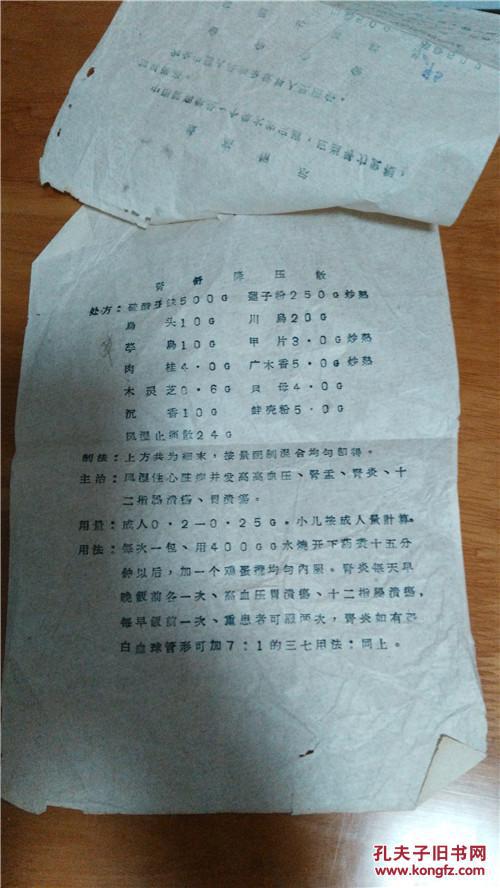 肾舒降压散
处方:硫酸亚铁500G 莲子粉250G炒熟
乌头10G 川乌20G
草乌10G 甲片3.0G炒熟
肉桂4.0G 广木香5.0G炒熟
木灵芝0.6G 贝母4.0G
沉香10G 蚌壳粉5.0G
风湿止痛散24G
制法:上方共为细末,按量配制混合均匀即得。
主治:风湿性心脏病并发高高血压、肾盂、肾炎、十
二指肠溃疡、胃溃疡。
用量:成人0.2—0.25G。小儿按成人量计算。
用法:每次一包、用400GG水烧开下药煮十五分
钟以后,加一个鸡蛋搅均匀内服。肾炎每天早
晚飯前各一次、高血压胃溃疡、十二指肠溃疡,
每早飯前一次、重患者可服两次,肾炎如有
白血球管形可加7:1的三七用法:同上。
孔夫子旧书网
www.kongfz.com